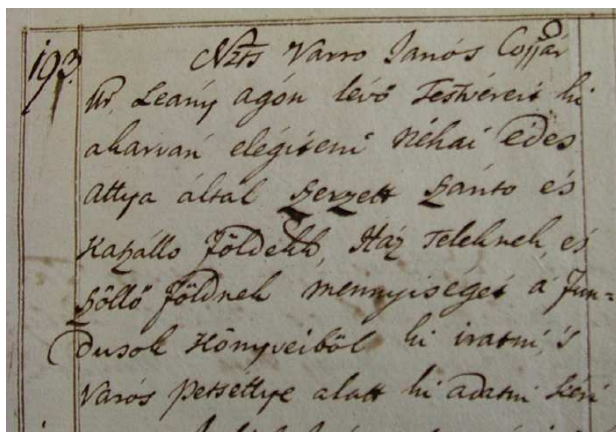 193. Nzts Varro Janós Cojjár
Ur, Leány agón lévő Testvéreit ki
akarván elégiteni Néhai edes
Attya által Szerzett Szánto és
Kaszállo földekk, Ház Teleknek es
Szőllő földnek mennyiséget á Fun=
dusok Könyveiböl ki iratni 's
Város petsettye alatt ki adatni kéri